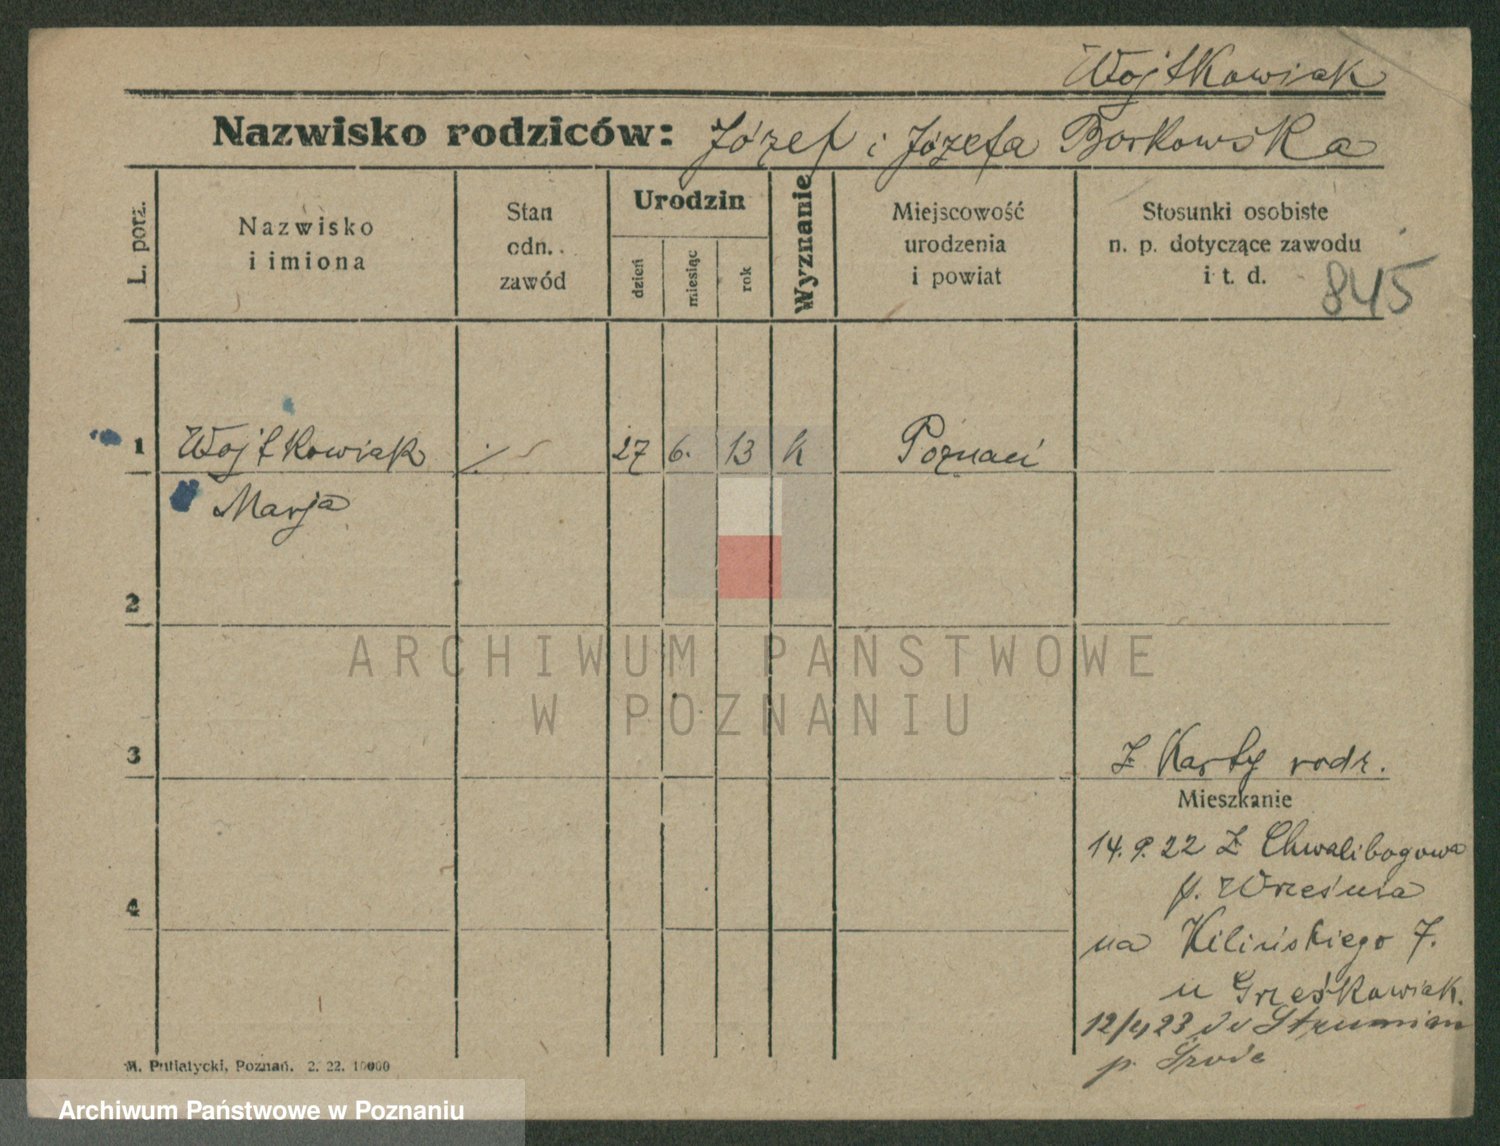 Wojtkowiak
Nazwisko rodziców: Józef i Józefa Borkowska
L. porz.
Nazwisko
i imiona
Stan
odn.
zawód
Urodzin
dzień
miesiąc
rok
Wyznanie
Miejscowość
urodzenia
i powiat
Stosunki osobiste
n. p. dotyczące zawodu
i t. d.
845
1 Wojtkowiak ./. 27 6. 13 k Poznań
Marja
2
ARCHIWUM PAŃSTWOWE
W POZNANIU
3
Z Karty rodz.
Mieszkanie
14.9.22 Z Chwalibogowa
p. Września
4
na Kilińskiego 7.
u Grześkowiak.
12/4 23 do Strumian
p. Środa
M. Putiatycki, Poznań. 2. 22. 10000
Archiwum Państwowe w Poznaniu